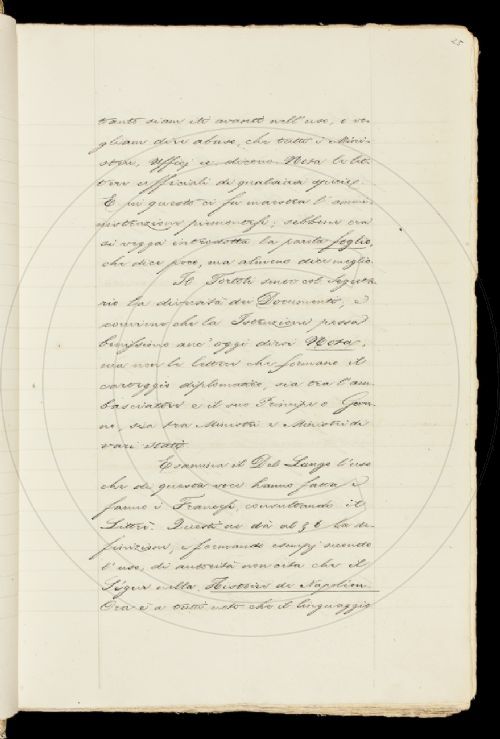 25
tanto siam iti avanti nell'uso, e vo-
gliam dire abuso, che tutti i Mini-
steri, Uffizj ec. dicono Nota le let-
tere officiali di qualsiasi specie.
E in questo ci fu maestra l'ammi-
nistrazione piemontese; sebbene ora
si vegga introdotta la parola foglio,
che dice poco, ma almeno dice meglio.
Il Tortoli
rio la diversità dei Documenti, e
conviene che la Istruzione possa
benissimo anc'oggi dirsi Nota,
ma non le lettere che formano il
carteggio diplomatico, sia tra l'am-
basciatore e il suo Principe o Gover-
no, sia tra Ministri e Ministri di
vari stati.
Esamina il Del Lungo l'uso
che di questa voce hanno fatto e
fanno i Francesi, consultando il
Littré. Questi ne dà al § 8 la de-
finizione, e formando esempj secondo
l'uso, di autorità non cita che il
Ségur nella Histoire de Napoléon.
Ora è a tutti noto che il linguaggio